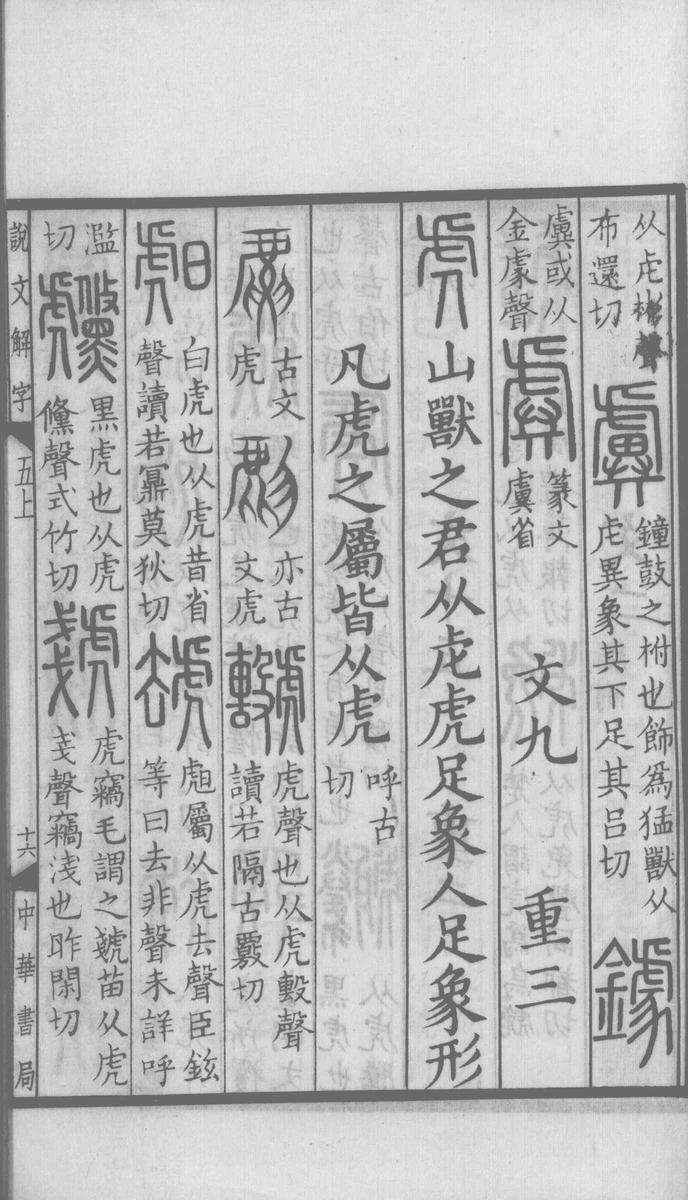 从虍彬聲
布還切
虡
鐘鼓之柎也飾為猛獸从
虍異象其下足其呂切
鐻
虡或从
金豦聲
虡
篆文
虡省
文九
重三
虎
山獸之君从虍虎足象人足象形
凡虎之屬皆从虎
呼古
切
古文
虎
亦古
文虎
虎聲也从虎毄聲
讀若隔古覈切
白虎也从虎昔省
聲讀若鼏莫狄切
虎去聲臣鉉
等曰去非聲未詳呼
濫
切
黑虎也从虎
儵聲式竹切
虎竊毛謂之虦苗从虎
戔聲竊淺也昨閑切
說文解字
五上
十六
中華書局